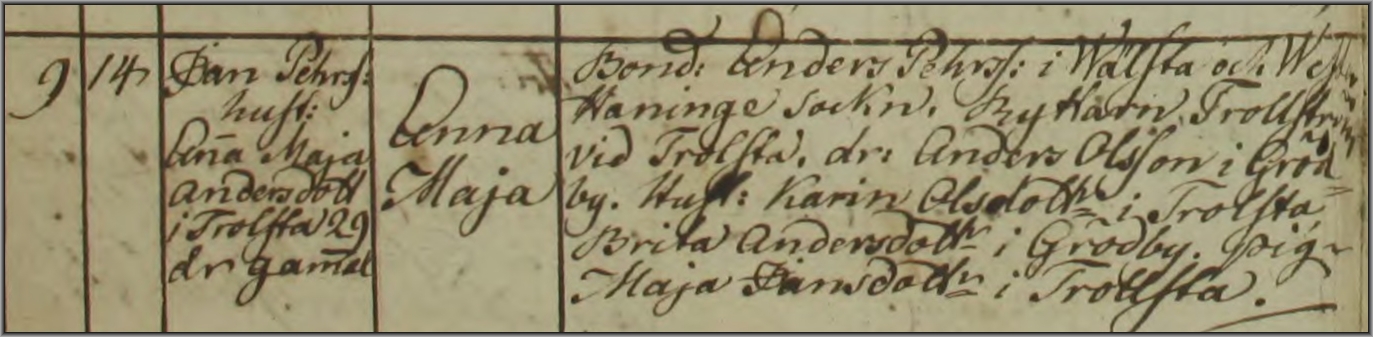 9
14
Jan Pehrss:
hust:
Ana Maja
Andersdott
i Trolsta 29
år gamal
Anna
Maja
Bond: Anders Pehrss: i Wålsta och
Haninge Sockn. Ryttarn Trollström
vid Trolsta. dr: Anders Olsson i Gröd-
by. Hust: Karin Olsdottr i Trolsta
Brita Andersdottr i Grödby. pig-
Maja Jansdottr i Trollsta.